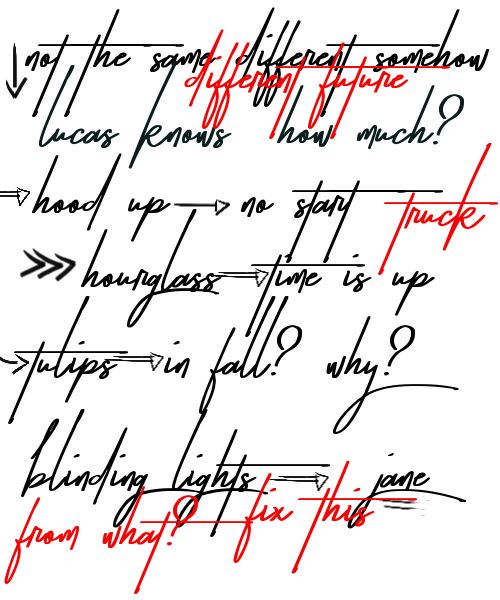 not the same different somehow
different future
lucas knows how much?
hood up no start truck
hourglass time is up
tulips in fall? why?
blinding lights jane
from what? fix this